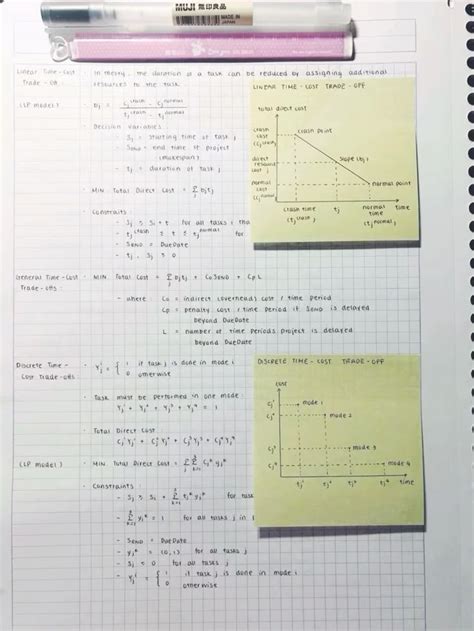 MUJI 無印良品
MADE IN JAPAN
Linear Time-Cost Trade-off
- In theory, the duration of a task can be reduced by assigning additional resources to the task
(LP model)
- bj = (cj crash - cj normal) / (tj crash - tj normal)
- Decision variables:
- Sj = starting time of task j
- SEND = end time of project (makespan)
- tj = duration of task j
- MIN Total Direct Cost = Σj bjtj
- Constraints:
- Sj ≥ Si + t for all tasks i tha
- tj crash ≤ t ≤ tj normal for
- SEND = DueDate
- tj, Sj ≥ 0
LINEAR TIME - COST TRADE - OFF
total direct cost
crash cost (cj crash)
crash point
direct resource cost j
slope (bj)
normal cost (cj normal)
normal point
crash time (tj crash)
tj
normal time (tj normal)
time
General Time-Cost Trade-offs:
- MIN Total Cost = Σj bjtj + Co SEND + Cp L
- where Co = indirect (overhead) cost / time period
Cp = penalty cost / time period if SEND is delayed beyond DueDate
L = number of time periods project is delayed beyond DueDate
Discrete Time-Cost Trade-offs
- Yj^i = { 1 if task j is done in mode i
0 otherwise
- Task must be performed in one mode:
Yj¹ + Yj² + Yj³ + Yj⁴ = 1
- Total Direct Cost:
Cj¹Yj¹ + Cj²Yj² + Cj³Yj³ + Cj⁴Yj⁴
(LP model)
- MIN Total Direct Cost = Σj Σ Cj^k yj^k
- Constraints:
- Sj ≥ Si + Σ ti^k yi^k for task
- Σ yj^k = 1 for all tasks j
- SEND = DueDate
- yj^k = (0,1) for all tasks j
- Sj ≥ 0 for all tasks j
- Yj^i = { 1 if task j is done in mode i
0 otherwise
DISCRETE TIME - COST TRADE - OFF
cost
cj¹
mode 1
cj²
mode 2
cj³
mode 3
cj⁴
mode 4
tj¹ tj² tj³ tj⁴ time